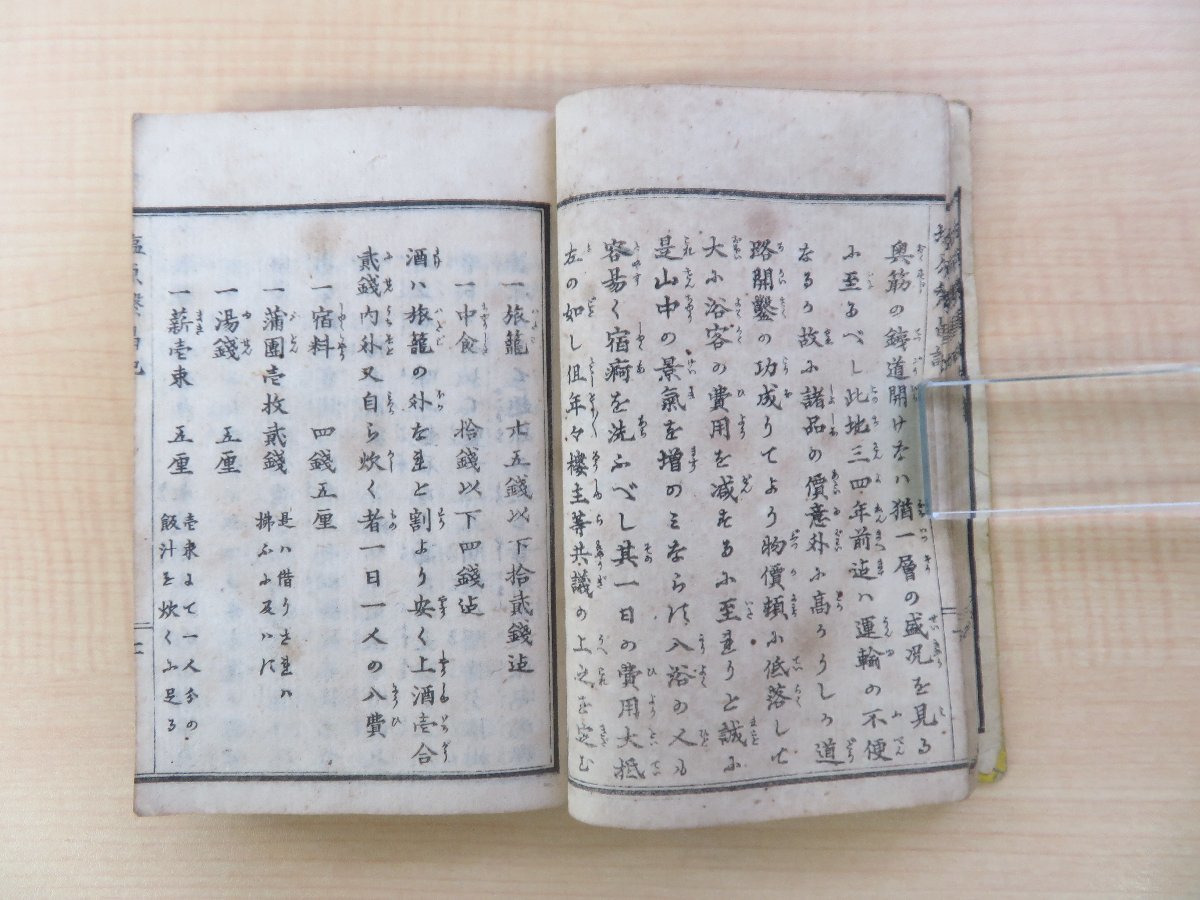 奥筋の鋳道開けなハ猶一層の盛况を見る
ふ至るべし此地三四年前迠ハ運輸の不便
なるゟ故ふ諸品の價意外ふ高かりしゟ道
路開鑿の功成りてより物價頓ふ低落して
大ふ浴客の費用を减ずるふ至れり誠ふ
是山中の景氣を増のミならず入浴の人も
容易く宿痾を洗ふべし其一日の費用大抵
左の如し但年々樓主等共議の上之を定む
一旅籠 廿五錢以下拾貳錢迠
一中食 拾錢以下四錢迠
酒ハ旅籠の外なれと割より安く上酒壱合
貳錢内外又自ら炊く者一日一人の入費
一宿料 四錢五厘
一蒲團壱枚貳錢 是ハ借りされハ
拂ふふ及ハず
一湯錢 五厘
一薪壱束 五厘 壱束にて一人分の
飯汁を炊くふ足る